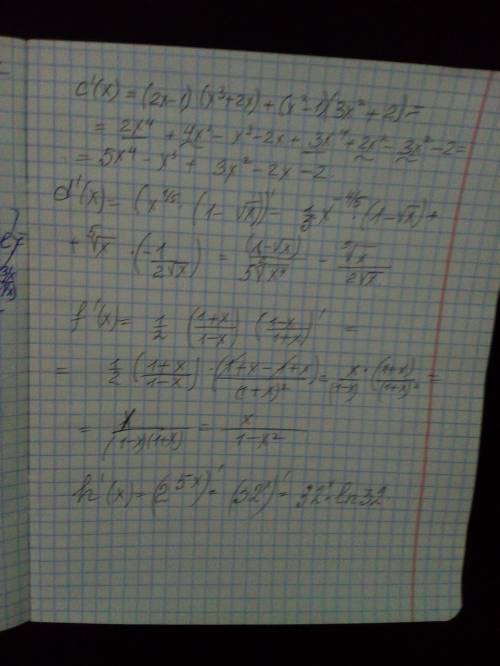 c'(x) = (2x-1)(x³+2x)+(x²-1)(3x²+2)=
= 2x⁴ + 4x² - x³-2x+ 3x⁴+2x²-3x²-2=
= 5x⁴ - x³ + 3x² -2x -2
d'(x)= (x^(1/5) · (1-√x))' = 1/5 x^(-4/5) (1-√x)+
+ ⁵√x · (-1/(2√x)) = (1-√x)/(5⁵√x⁴) - ⁵√x/(2√x)
f'(x)= 1/2 ((1+x)/(1-x)) ((1-x)/(1+x))' =
= 1/2 ((1+x)/(1-x)) · (1+x-1+x)/(1+x)² = x/(1-x) · (1+x)/(1+x)² =
= x/((1-x)(1+x)) = x/(1-x²)
h'(x) = (2^(5x))' = (32^x)' = 32^x · ln32